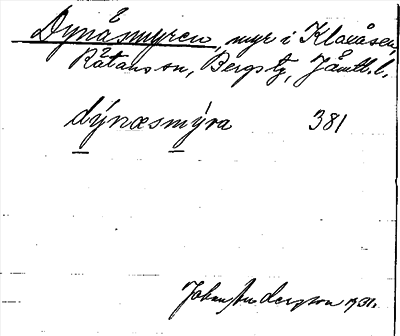 Dynåsmyren, myr i Klaxåsen,
Rätans sn, Bergs tg, Jämtl. l.
dýnæsmýra 381
Johan Anderson 1931.